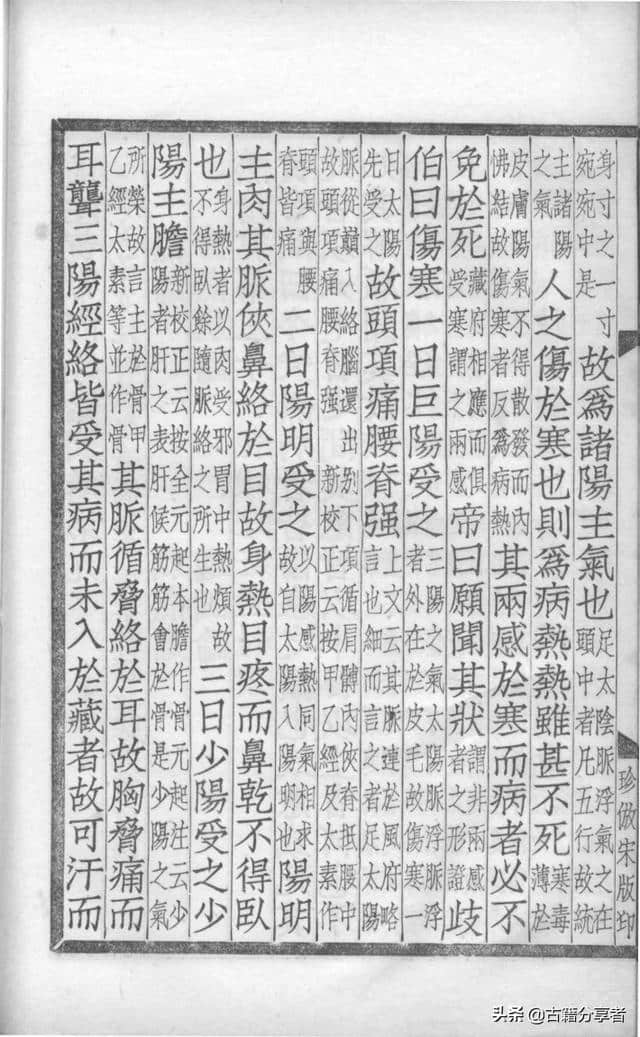 珍倣宋版印
身寸之一寸
宛宛中是
故爲諸陽主氣也
足太陰脈浮氣之在
頭中者凡五行故統
主諸陽
之氣
人之傷於寒也則爲病熱熱雖甚不死
寒毒
薄於
皮膚陽氣不得散發而內
怫結故傷寒者反爲病熱
其兩感於寒而病者必不
免於死
藏府相應而俱
受寒謂之兩感
帝曰願聞其狀
謂非兩感
者之形證
歧
伯曰傷寒一日巨陽受之
三陽之氣太陽脈浮脈浮
者外在於皮毛故傷寒一
日太陽
先受之
故頭項痛腰脊强
上文云其脈連於風府略
言也細而言之者足太陽
脈從巔入絡腦還出别下項循肩髆內俠脊抵腰中
故頭項痛腰脊强 新校正云按甲乙經及太素作
頭項與腰
脊皆痛
二日陽明受之
以陽感熱同氣相求
故自太陽入陽明也
陽明
主肉其脈俠鼻絡於目故身熱目疼而鼻乾不得臥
也
身熱者以肉受邪胃中熱煩故
不得臥餘隨脈絡之所生也
三日少陽受之少
陽主膽
新校正云按全元起本膽作骨元起注云少
陽者肝之表肝候筋筋會於骨是少陽之氣
所榮故言主於骨甲
乙經太素等並作骨
其脈循脅絡於耳故胸脅痛而
耳聾三陽經絡皆受其病而未入於藏者故可汗而
头条 @古籍分享者